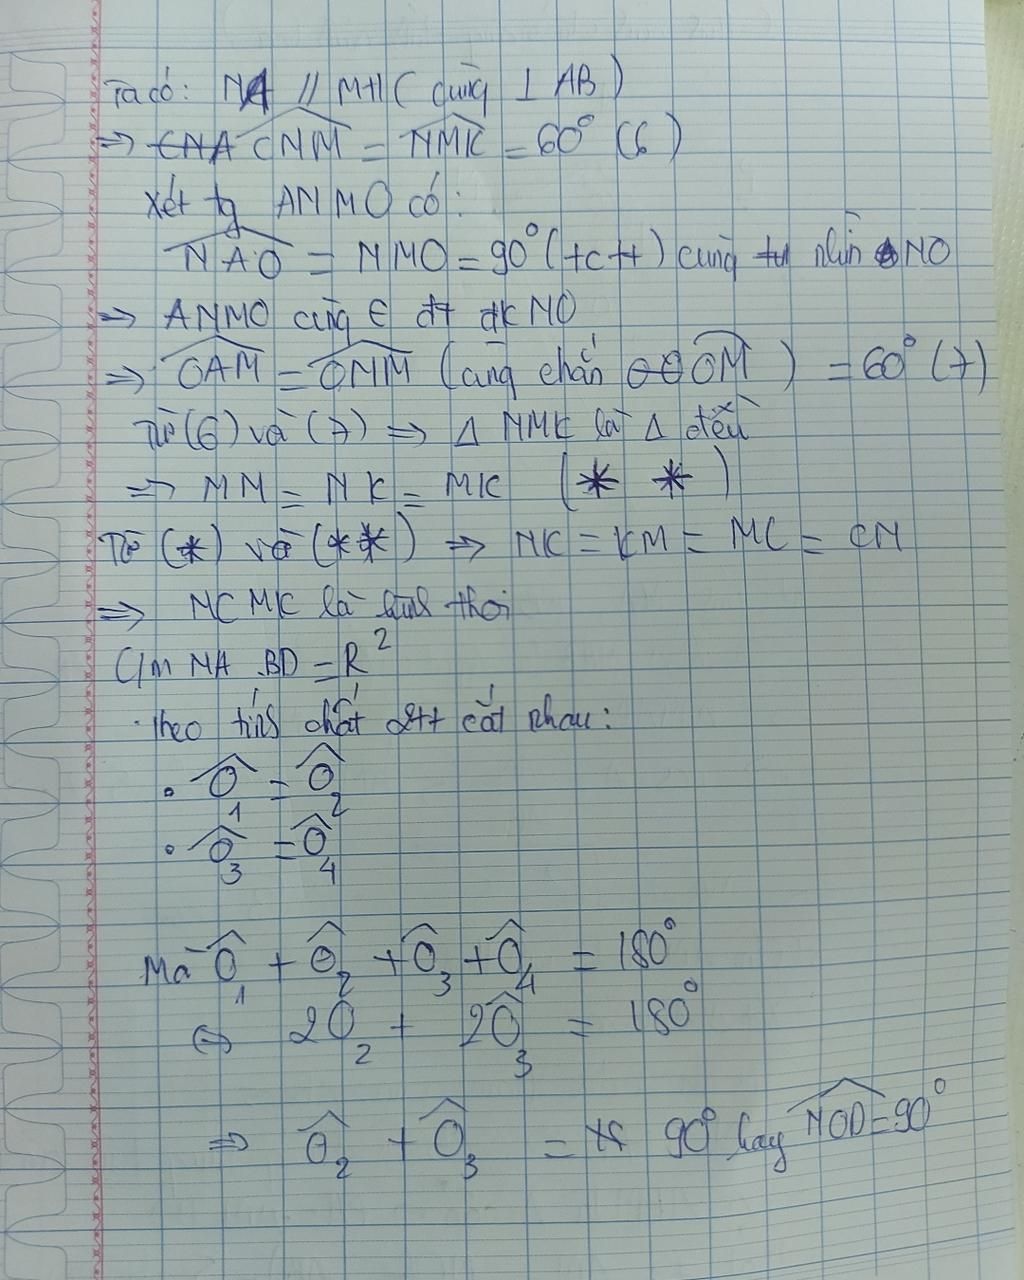 Ta có: NA // MH ( cùng ⊥ AB )
=> CNA CNM = NMK = 60° (6)
Xét tg ANMO có:
NAO = NMO = 90° (tctt) cùng nhìn NO
=> ANMO cùng ∈ đt đk NO
=> OAM = ONM (cùng chắn OM ) = 60° (7)
Từ (6) và (7) => Δ NMK là Δ đều
=> NM = NK = MK ( * * )
Từ (*) và (**) => NK = KM = MC = CN
=> NCMK là hình thoi
C/m NA . BD = R²
Theo tính chất 2tt cắt nhau:
• O₁ = O₂
• O₃ = O₄
Mà O₁ + O₂ + O₃ + O₄ = 180°
⇔ 2O₂ + 2O₃ = 180°
=> O₂ + O₃ = 90° hay NOD = 90°